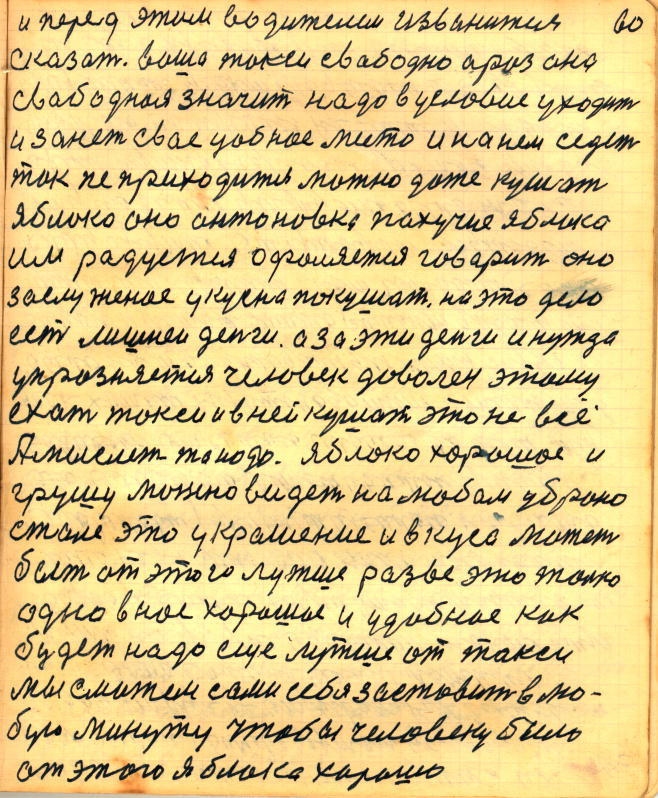 и перед этом водителем извенится 60
сказат. ваша такси свабодно араз она
свабодная значит надо вусловие уходит
и занет свае удобное место и на нем седет
так не приходится можно даже кушат
яблоко оно антоновка пахучие яблока
им радуется офоляется говарит оно
заслуженое укусна покушат. на это дело
ест лишнеи денги. а за эти денги и нужда
упрозняется человек доволен этому
ехат такси и в ней кушат это не всё
А мыслет то надо. яблоко хорошое и
грушу можно видет на любом уброно
стале это украшение и вкуса может
быт от этого лутше разве это толко
одно вное хорошое и удобное как
будет надо еще лутше от такси
мы сможем сами себя заставит в лю-
бую минуту чтобы человеку было
от этого яблока хорошо